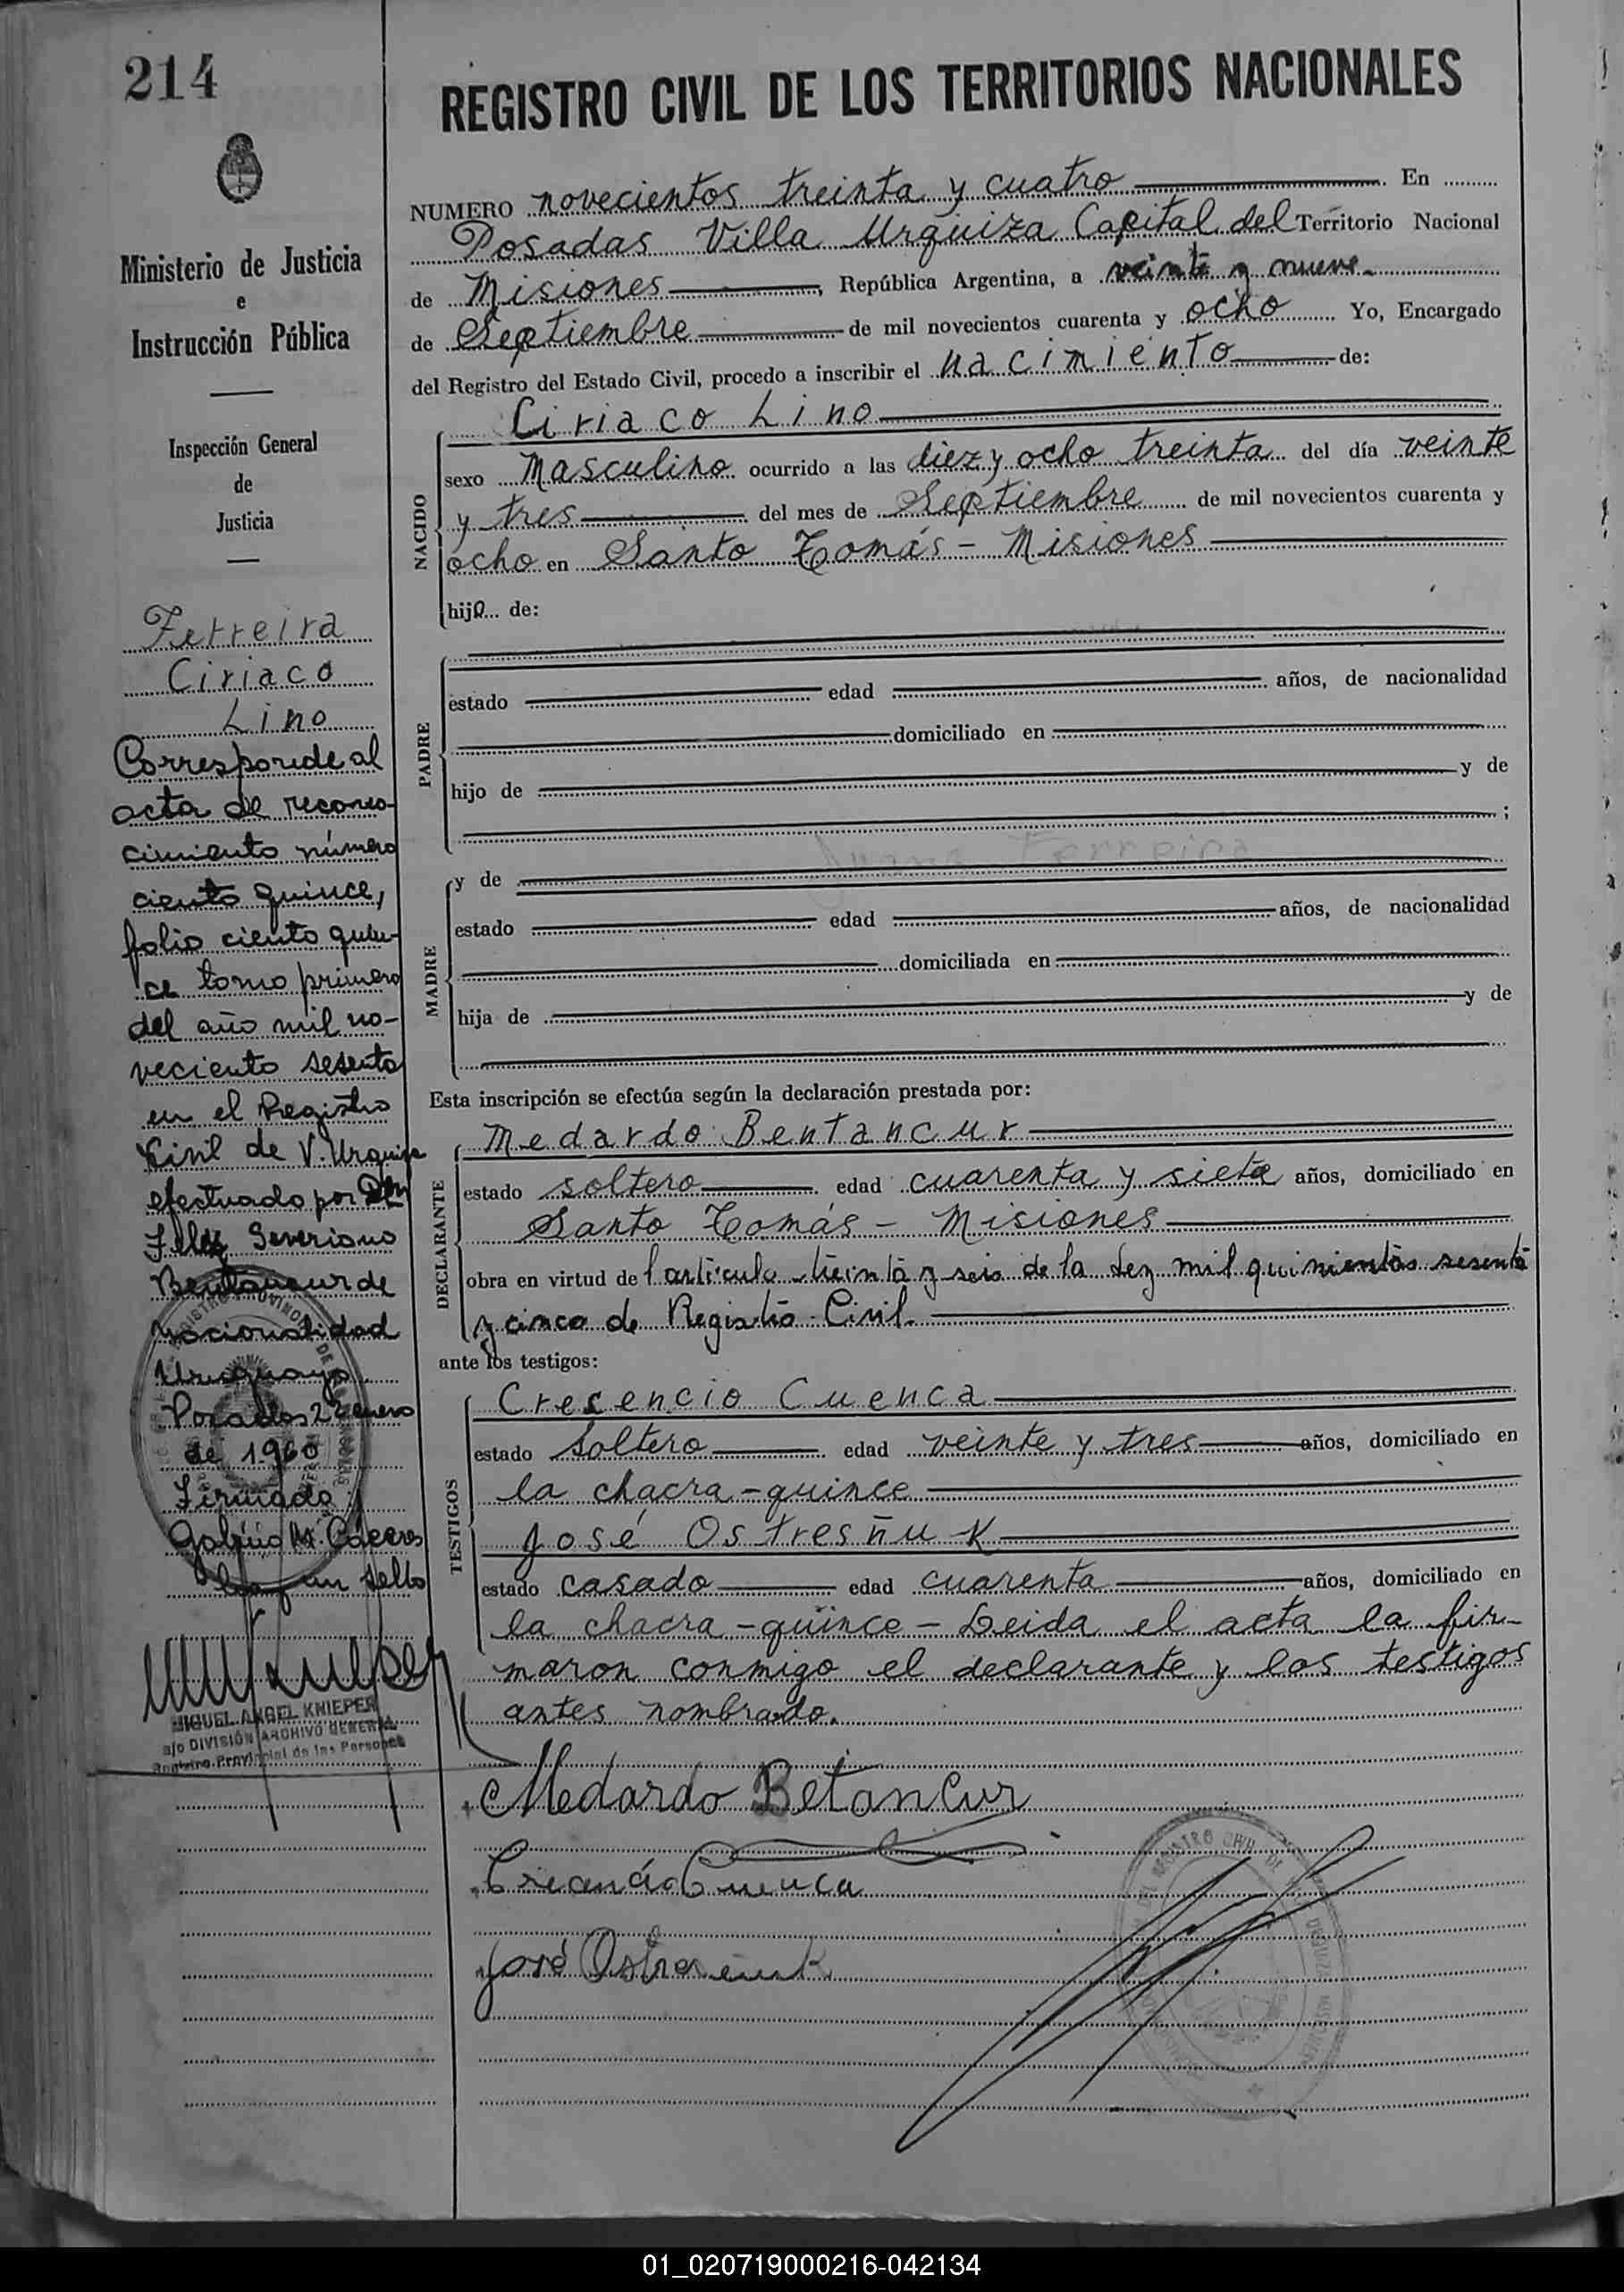 214
Ministerio de Justicia
e
Instrucción Pública
Inspección General
de
Justicia
Ferreira
Ciriaco
Lino
Corresponde al
acta de recono-
cimiento número
ciento quince,
folio ciento quin-
ce tomo primero
del año mil no-
veciento sesenta
en el Registro
Civil de V. Urquiza
efectuado por Don
Severiano
Bentancur de
nacionalidad
Uruguayo
Posadas 22 enero
de 1960
Firmado
Cáceres
un sello
MIGUEL ANGEL KNIEPER
a/c DIVISIÓN ARCHIVO GENERAL
Registro Provincial de las Personas
REGISTRO CIVIL DE LOS TERRITORIOS NACIONALES
NUMERO novecientos treinta y cuatro En
Posadas Villa Urquiza Capital del Territorio Nacional
de Misiones, República Argentina, a veinte y nueve
de Septiembre de mil novecientos cuarenta y ocho Yo, Encargado
del Registro del Estado Civil, procedo a inscribir el nacimiento de:
NACIDO
Ciriaco Lino
sexo Masculino ocurrido a las diez y ocho treinta del día veinte
y tres del mes de Septiembre de mil novecientos cuarenta y
ocho en Santo Tomás - Misiones
hijo de:
PADRE
estado edad años, de nacionalidad
domiciliado en
hijo de y de
;
MADRE
Juana Ferreira
y de
estado edad años, de nacionalidad
domiciliada en
hija de y de
Esta inscripción se efectúa según la declaración prestada por:
DECLARANTE
Medardo Bentancur
estado soltero edad cuarenta y siete años, domiciliado en
Santo Tomás - Misiones
obra en virtud de l artículo treinta y seis de la Ley mil quinientos sesenta
y cinco de Registro Civil.
ante los testigos:
TESTIGOS
Cresencio Cuenca
estado soltero edad veinte y tres años, domiciliado en
la chacra - quince
José Ostresñuk
estado casado edad cuarenta años, domiciliado en
la chacra - quince - Leida el acta la fir-
maron conmigo el declarante y los testigos
antes nombrado.
Medardo Betancur
Cuenca
José
01_020719000216-042134